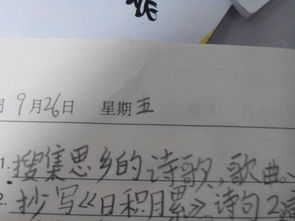 月 9月26日 星期五
1.搜集思乡的诗歌、歌曲
2.抄写《日积月累》诗句2遍